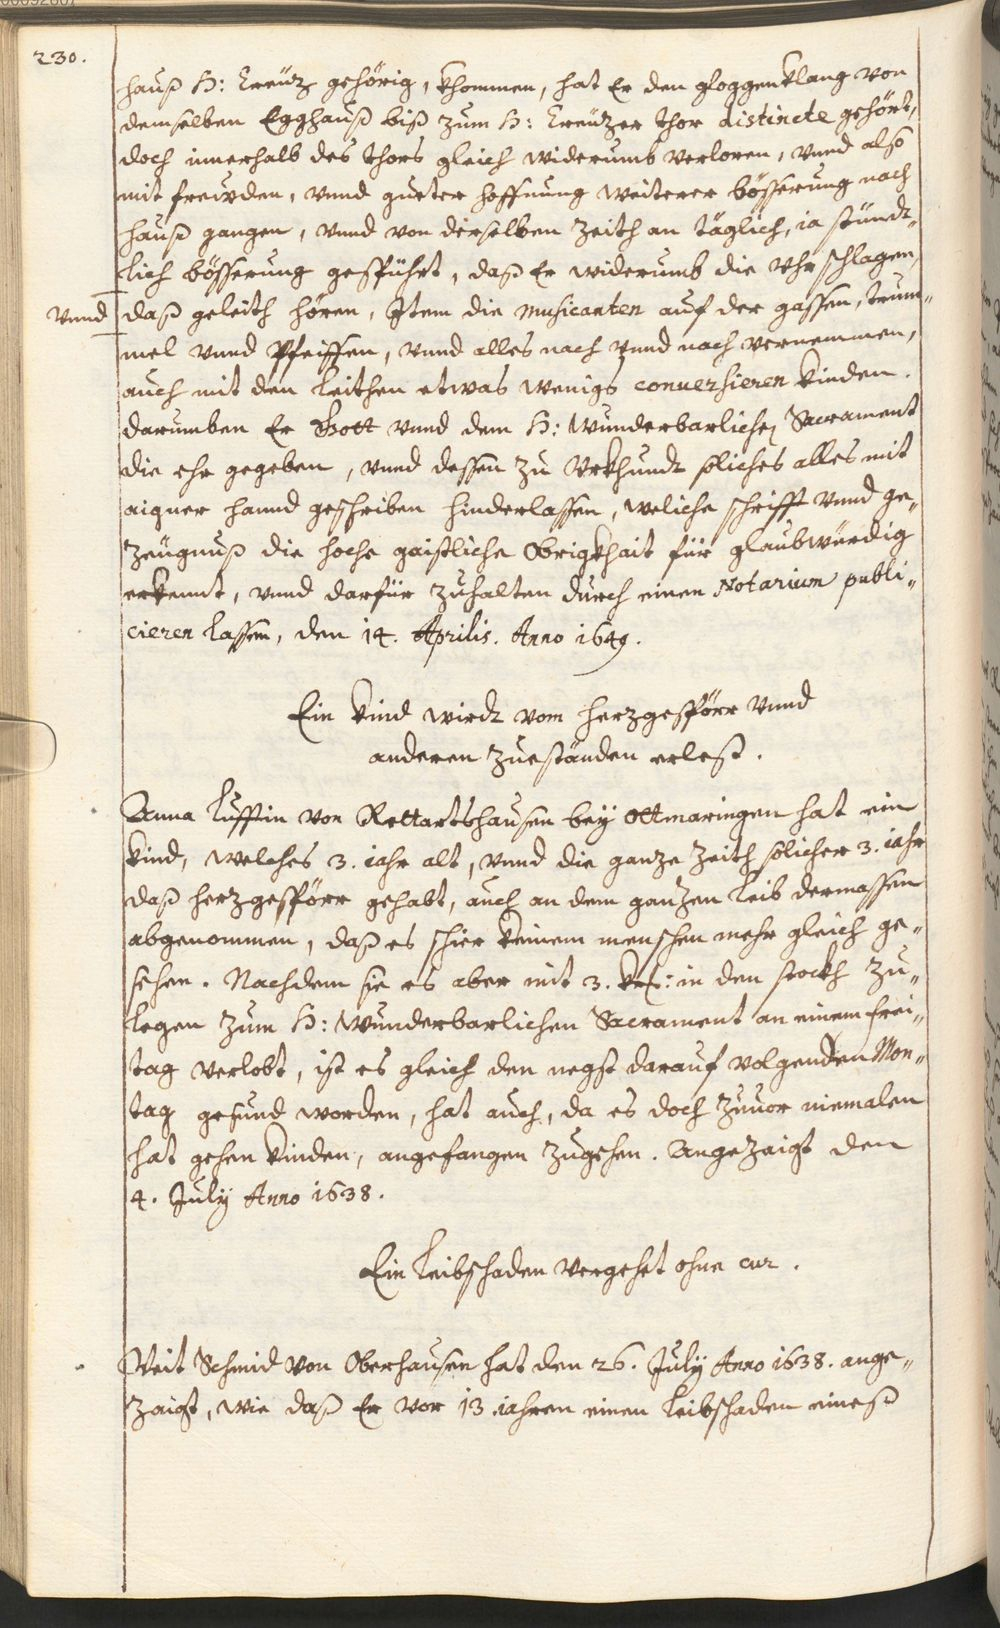 230.
hauß H: Creüz gehörig, khommen, hat Er den gloggenklang von
demselben Egghauß biß zum H: Creützer thor distincte gehört,
doch innerhalb des thors gleich widerumb verloren, vnnd also
mit freüden, vnnd gueter hoffnung weiterer bösserung nach
hauß gangen, vnnd von derselben Zeith an täglich, ia stündt„
lich bösserung gespührt, daß Er widerumb die Vhr schlagen,
vnnd daß geleith hören, Item die Musicanten auf der gassen, trum„
mel vnnd Pfeiffen, vnnd alles nach vnnd nach vernemmen,
auch mit den leithen etwas wenigs conuersieren kinden.
darumben Er Gott vnnd dem H: Wunderbarlichen Sacrament
die ehr gegeben, vnnd dessen zu Vrkhundt soliches alles mit
aigner hannd geschriben hinderlassen, weliche schrifft vnnd ge„
Zeügnuß die hoche gaistliche Obrigkhait für glaubwürdig
erkennt, vnnd darfür zuhalten durch einen Notarium publi„
cieren lassen, den 14. Aprilis. Anno 1649.
Ein kind wirdt vom herzgespörr vnnd
anderen Zueständen erlest.
Anna Lufftin von Rettartshausen bey Ottmaringen hat ein
kind, welches 3. iahr alt, vnnd die ganze Zeith solicher 3. iahr
daß herzgespörr gehabt, auch an dem gantzen leib dermassen
abgenommen, daß es schier keinem menschen mehr gleich ge„
sehen. Nachdem sie es aber mit 3. in den stockh zu„
legen zum H: Wunderbarlichen Sacrament an einem frei„
tag verlobt, ist es gleich den negst darauf volgenden Mon„
tag gesund worden, hat auch, da es doch zuuor niemalen
hat gehen kinden, angefangen zugehen. Angezaigt den
4. July Anno 1638.
Ein leibschaden vergehet ohne cur.
Veit Schmid von Oberhausen hat den 26. July Anno 1638. ange„
zaigt, wie daß Er vor 13 iahren einen leibschaden eineß